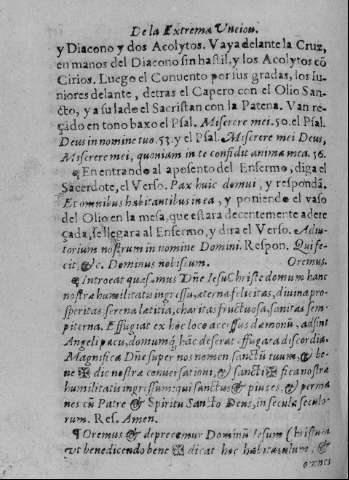 De la Extrema Vncion.
y Diacono y dos Acolytos. Vaya delante la Cruz,
en manos del Diacono sin hastil, y los Acolytos cõ
Cirios. Luego el Conuento por sus gradas, los iu-
niores delante, detras el Capero con el Olio San-
cto, y a su lado el Sacristan con la Patena. Van re-
çado en tono baxo el Psal. Miserere mei. 50. el Psal.
Deus in nomine tuo. 53. y el Psal. Miserere mei Deus,
Miserere mei, quoniam in te confidit anima mea. 56.
¶ En entrando al aposento del Enfermo, diga el
Sacerdote, el Verso. Pax huic domui, y respondã.
Et omnibus habitantibus in ea, y poniendo el vaso
del Olio en la mesa, que estara decentemente adere
çada, se llegara al Enfermo, y dira el Verso. Adiu-
torium nostrum in nomine Domini. Respon. Qui fe-
cit, &c. Dominus nobiscum. Oremus.
¶ Introeat quæsumus Dñe Iesu Christe domum hanc
nostra humilitatis ingressu, æterna felicitas, diuina pro-
speritas, serena lætitia, charitas fructuosa, sanitas sem-
piterna. Effugiat ex hoc loco accessus dæmonũ, adsint
Angeli pacis, domumq́ hãc deserat effugata discordia.
Magnifica Dñe super nos nomen sanctũ tuum, & be
ne ✠ dic nostra conuersationi, & sancti ✠ fica nostræ
humilitatis ingressum: qui sanctus, & pius es, & perma
nes cũ Patre & Spiritu Sancto Deus, in secula seculo-
rum. Res. Amen.
¶ Oremus & deprecemur Dominũ Iesum Christum
vt benedicendo bene ✠ dicat hoc habitaculum, &
omnes